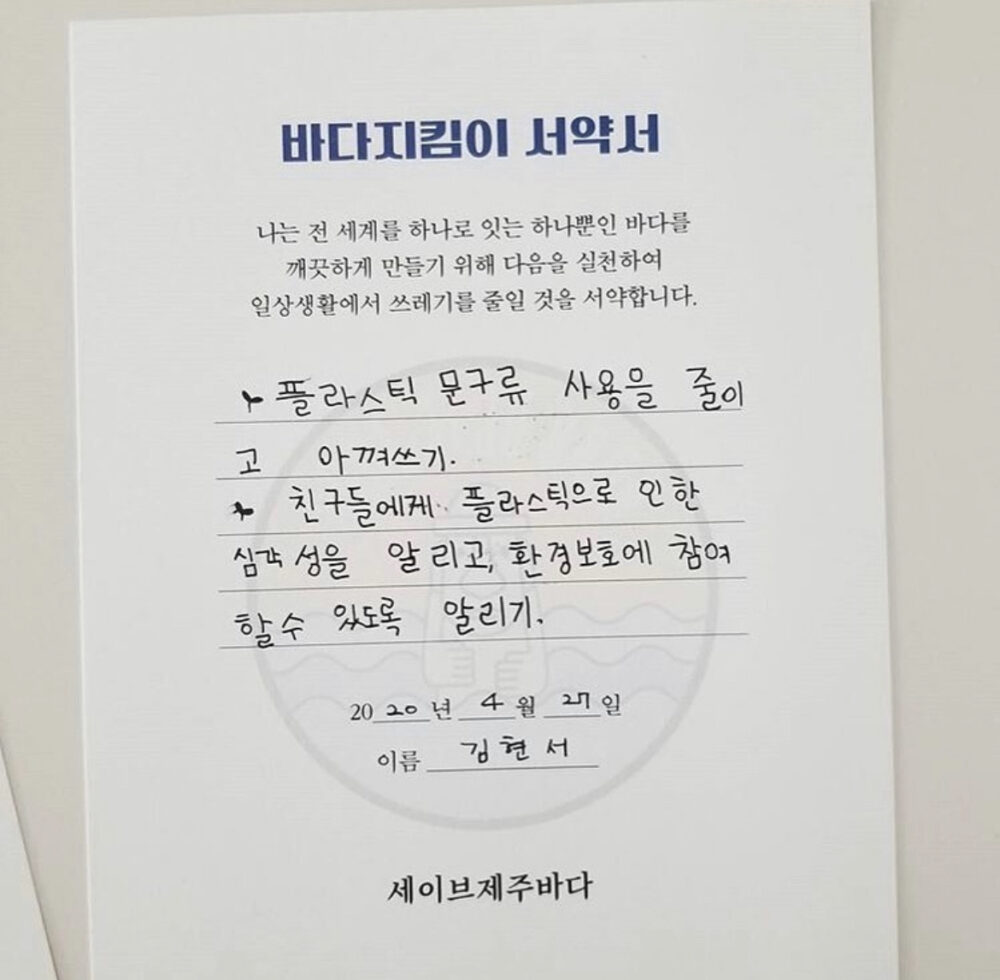 바다지킴이 서약서
나는 전 세계를 하나로 잇는 하나뿐인 바다를
깨끗하게 만들기 위해 다음을 실천하여
일상생활에서 쓰레기를 줄일 것을 서약합니다.
플라스틱 문구류 사용을 줄이
고 아껴쓰기.
친구들에게 플라스틱으로 인한
심각성을 알리고, 환경보호에 참여
할수 있도록 알리기.
2020년 4월 27일
이름 김현서
세이브제주바다